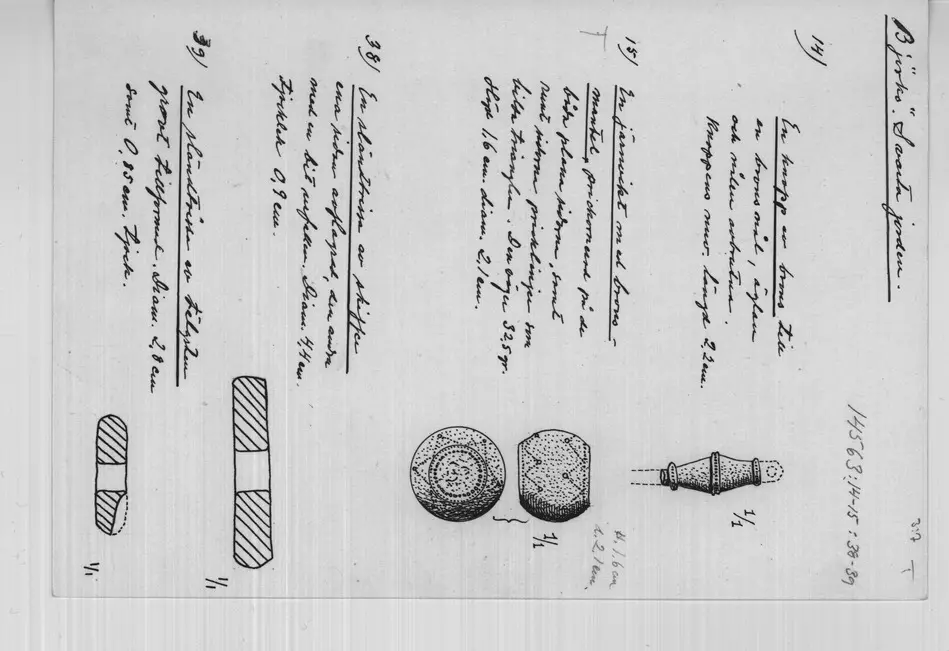 Björkö. "Svarta jorden.
317
14563:14-15:38-39
14) En knopp av brons till
en bronsnål, öglan
och nålen avbrutna.
Knoppens nuv. längd 2,2 cm.
1/1
15) En järnvikt med brons-
mantel, prickornerad på de
båda plana sidorna, samt
runt sidorna pricklinjer som
bilda trianglar. Den väger 32,5 gr.
Höjd 1,6 cm. diam. 2,1 cm.
1/1
H. 1.6 cm
d. 2.1 cm.
38) En sländtrissa av skiffer
ena sidan avflagad, den andra
med en bit avfallen. Diam. 4,4 cm.
Tjocklek 0,9 cm.
1/1
39) En sländtrissa av täljsten
grovt tillformad. Diam. 2,8 cm
samt 0,85 cm. tjock.
1/1